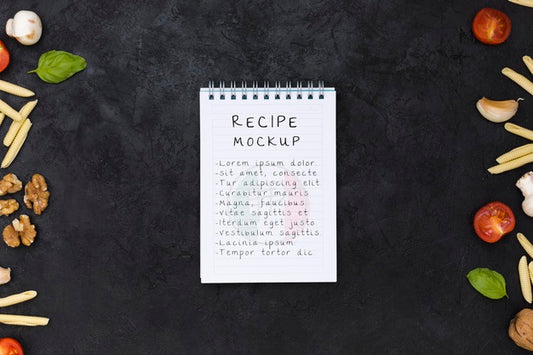 RECIPE
MOCKUP
-Lorem ipsum dolor
-sit amet, consecte
-Tur adipiscing elit
-Curabitur mauris
-Magna, faucibus
-Vitae sagittis et
-Iterdum eget justo
-Vestibulum sagittis
-Lacinia ipsum
-Tempor tortor dic